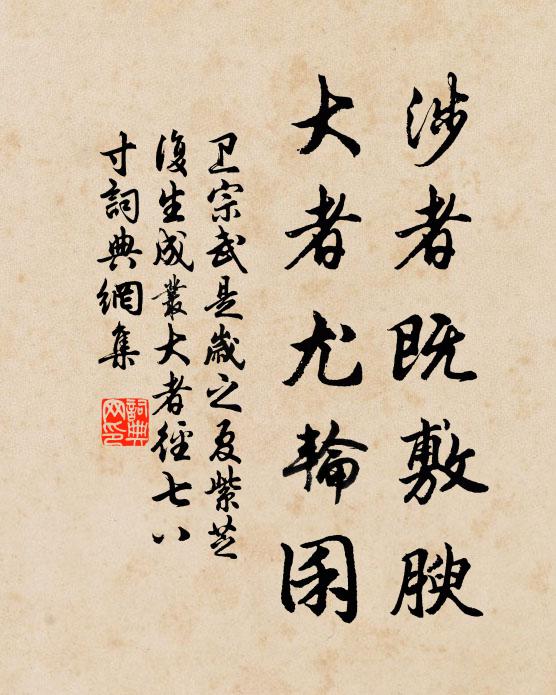 涉者既敷腴
大者尤輪囷
卫宗武是歲之夏紫芝
復生成叢大者徑七八
寸詞典網集
詞典网印